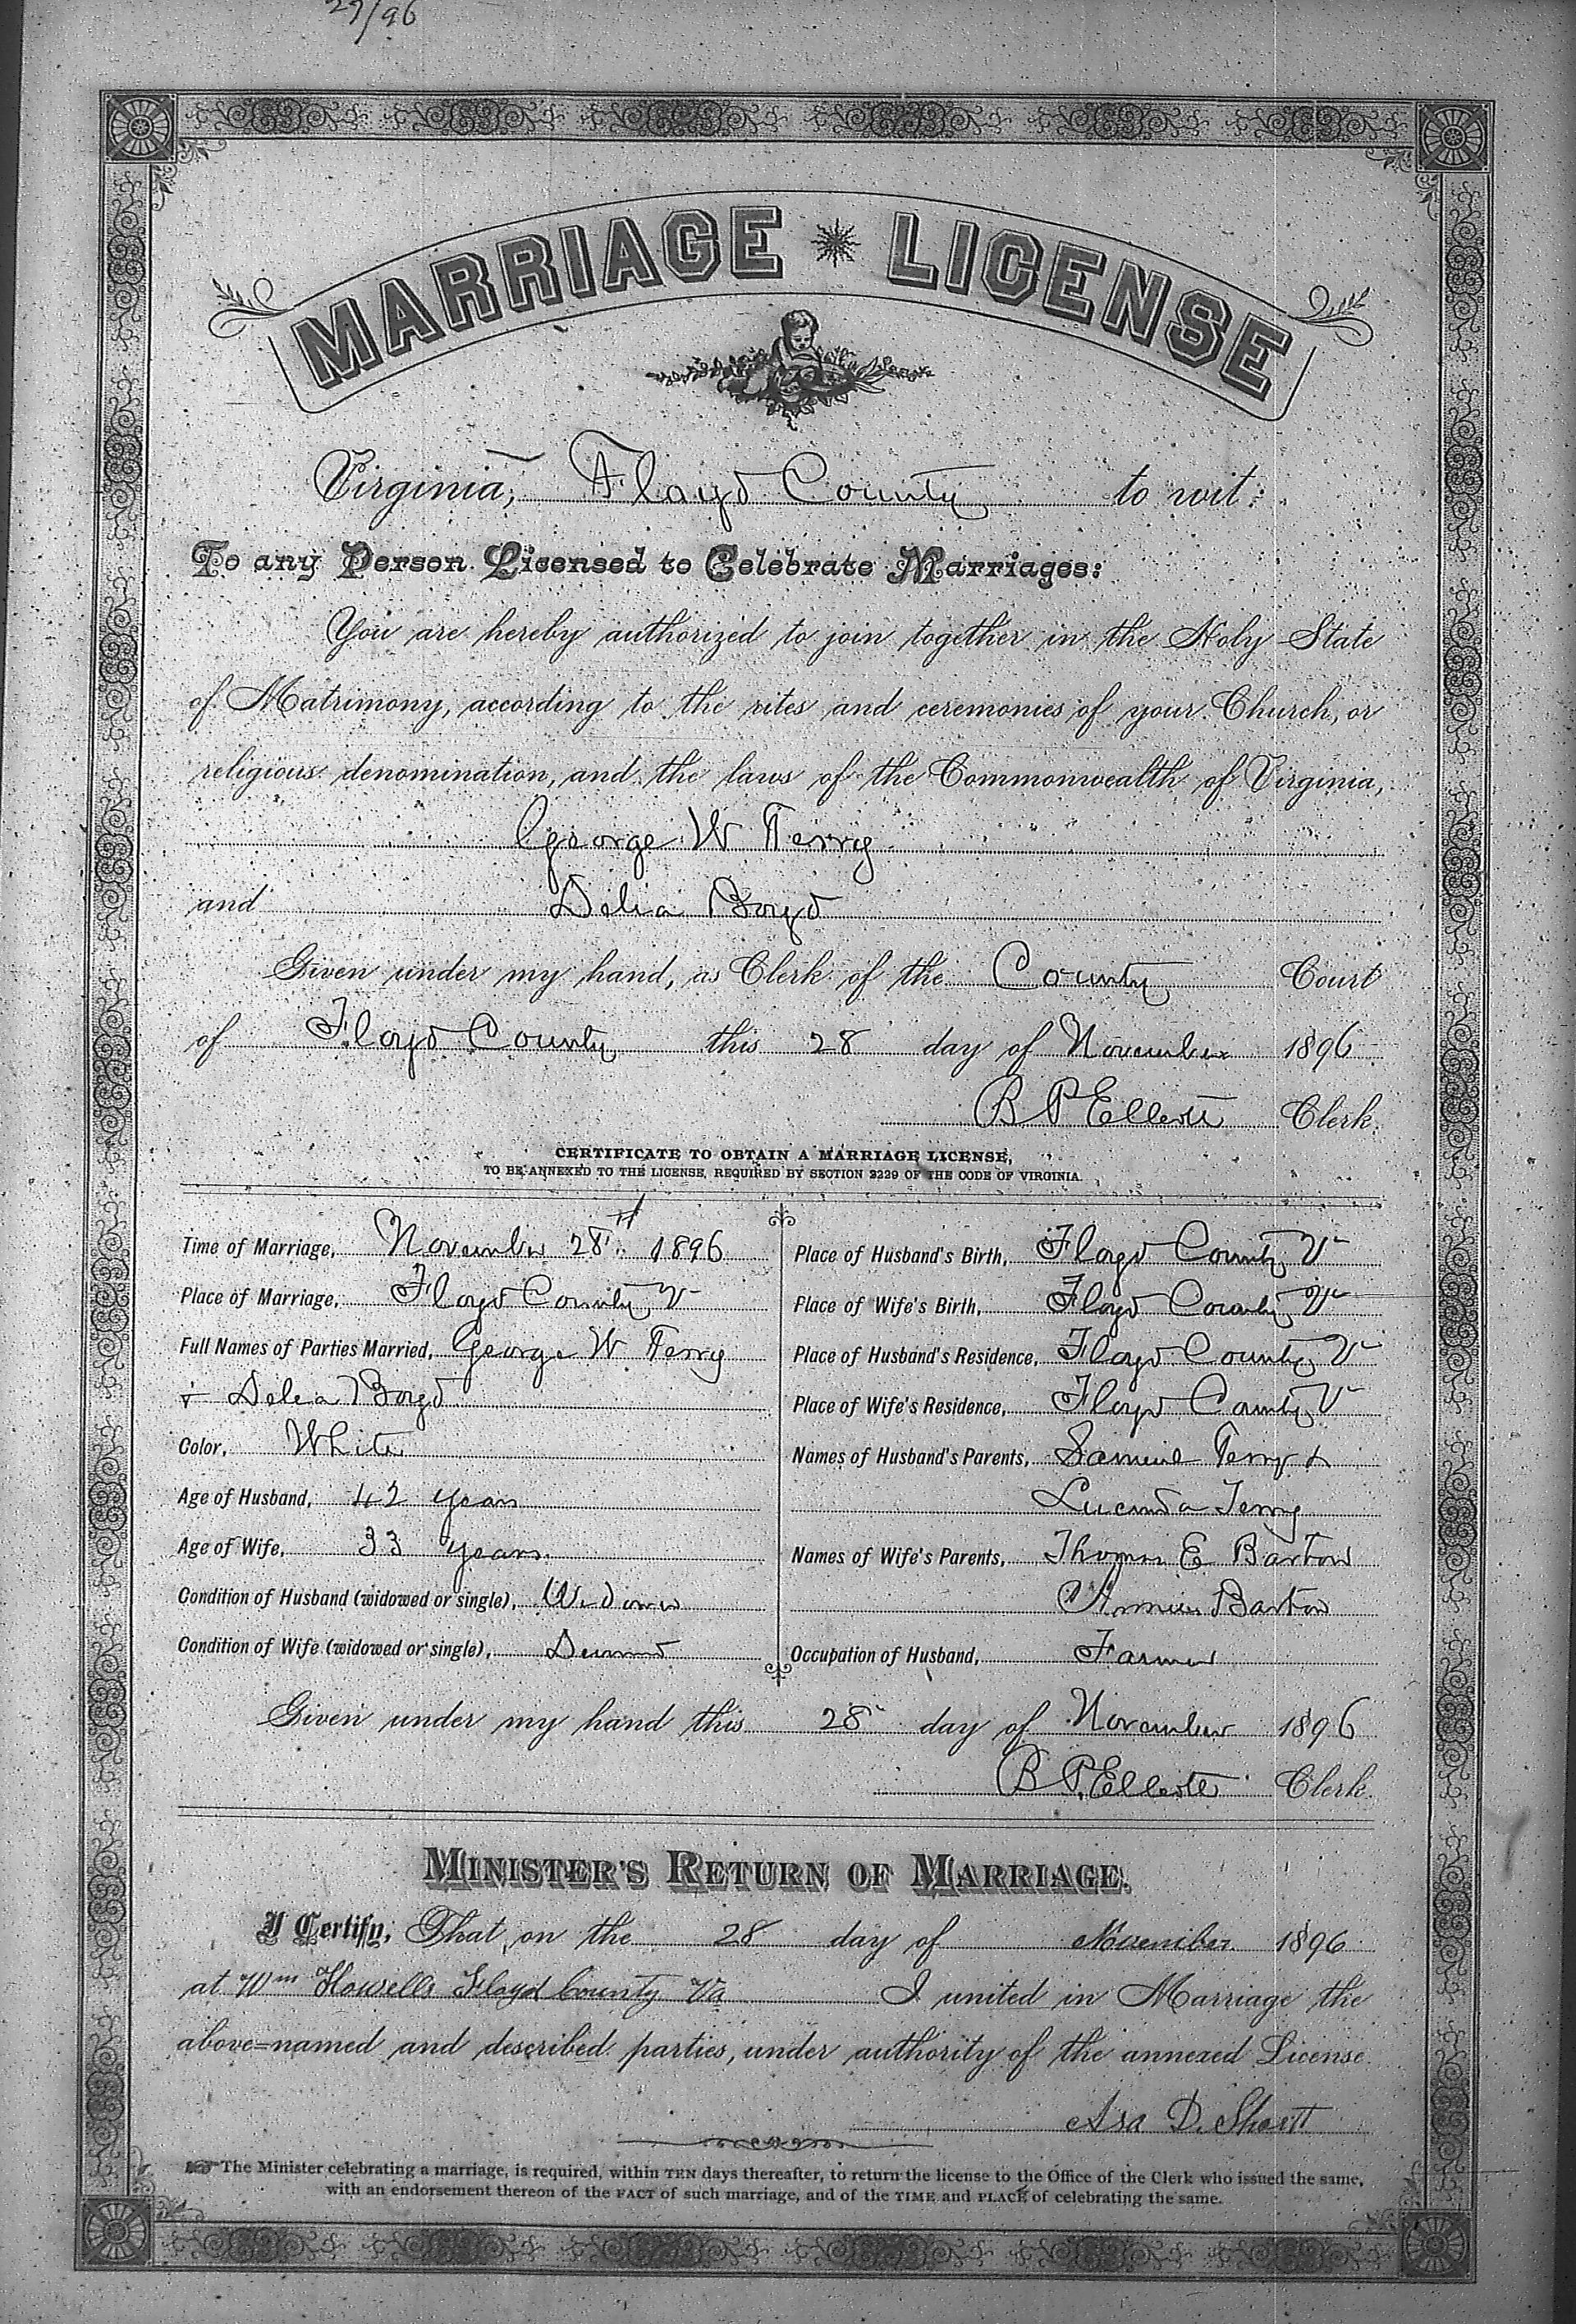 29/96
MARRIAGE LICENSE
Virginia, Floyd County to wit:
To any Person Licensed to Celebrate Marriages:
You are hereby authorized to join together in the Holy State
of Matrimony, according to the rites and ceremonies of your Church, or
religious denomination, and the laws of the Commonwealth of Virginia,
George W Terry
and Delia Boyd
Given under my hand, as Clerk of the County Court
of Floyd County this 28 day of November 1896
B P Ellett Clerk.
CERTIFICATE TO OBTAIN A MARRIAGE LICENSE,
TO BE ANNEXED TO THE LICENSE, REQUIRED BY SECTION 2229 OF THE CODE OF VIRGINIA.
Time of Marriage, November 28th 1896
Place of Marriage, Floyd County V
Full Names of Parties Married, George W Terry
+ Delia Boyd
Color, White
Age of Husband, 42 years
Age of Wife, 33 years
Condition of Husband (widowed or single), Widower
Condition of Wife (widowed or single),
Place of Husband's Birth, Floyd County V
Place of Wife's Birth, Floyd County V
Place of Husband's Residence, Floyd County V
Place of Wife's Residence, Floyd County V
Names of Husband's Parents, Samuel Terry &
Lucinda Terry
Names of Wife's Parents, Thomas E Barton
Barton
Occupation of Husband, Farmer
Given under my hand this 28 day of November 1896
B P Ellett Clerk.
MINISTER'S RETURN OF MARRIAGE.
I Certify, That on the 28 day of November 1896
at Wm Howells Floyd County Va I united in Marriage the
above-named and described parties, under authority of the annexed License.
Asa D. Shortt
The Minister celebrating a marriage, is required, within TEN days thereafter, to return the license to the Office of the Clerk who issued the same,
with an endorsement thereon of the FACT of such marriage, and of the TIME and PLACE of celebrating the same.